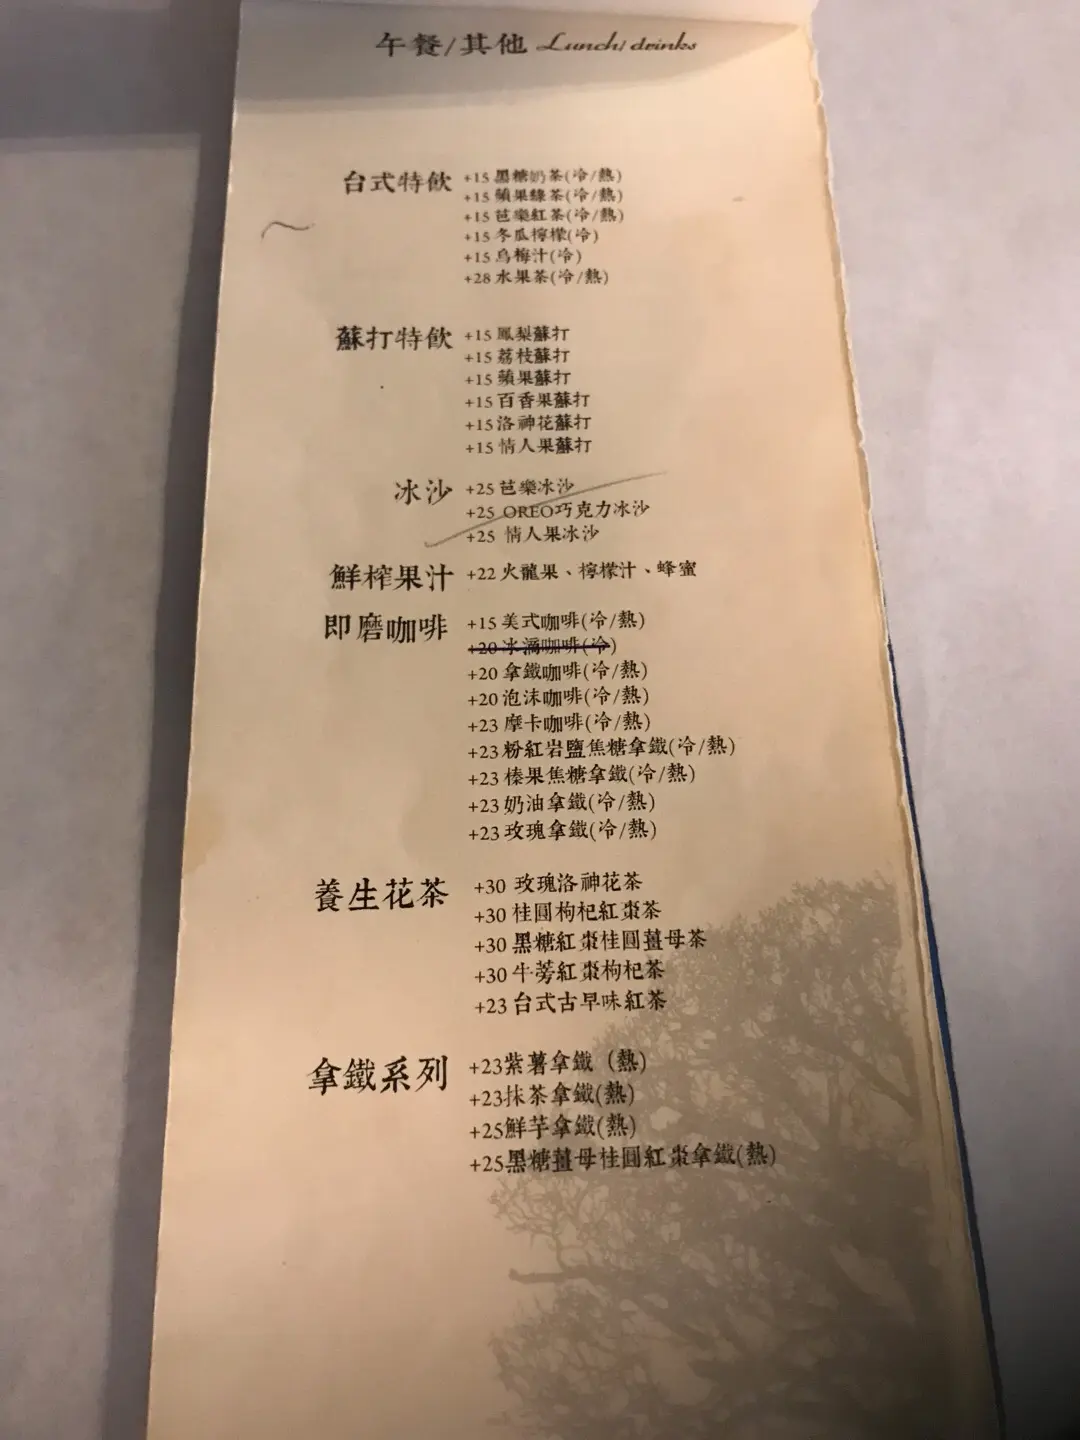 午餐/其他 Lunch/drinks
台式特飲 +15 黑糖奶茶(冷/熱)
+15 蘋果綠茶(冷/熱)
+15 芭樂紅茶(冷/熱)
+15 冬瓜檸檬(冷)
+15 烏梅汁(冷)
+28 水果茶(冷/熱)
蘇打特飲 +15 鳳梨蘇打
+15 荔枝蘇打
+15 蘋果蘇打
+15 百香果蘇打
+15 洛神花蘇打
+15 情人果蘇打
冰沙 +25 芭樂冰沙
+25 OREO巧克力冰沙
+25 情人果冰沙
鮮榨果汁 +22 火龍果、檸檬汁、蜂蜜
即磨咖啡 +15 美式咖啡(冷/熱)
+20 冰滴咖啡(冷)
+20 拿鐵咖啡(冷/熱)
+20 泡沫咖啡(冷/熱)
+23 摩卡咖啡(冷/熱)
+23 粉紅岩鹽焦糖拿鐵(冷/熱)
+23 榛果焦糖拿鐵(冷/熱)
+23 奶油拿鐵(冷/熱)
+23 玫瑰拿鐵(冷/熱)
養生花茶 +30 玫瑰洛神花茶
+30 桂圓枸杞紅棗茶
+30 黑糖紅棗桂圓薑母茶
+30 牛蒡紅棗枸杞茶
+23 台式古早味紅茶
拿鐵系列 +23紫薯拿鐵（熱)
+23抹茶拿鐵(熱)
+25鮮芋拿鐵(熱)
+25黑糖薑母桂圓紅棗拿鐵(熱)